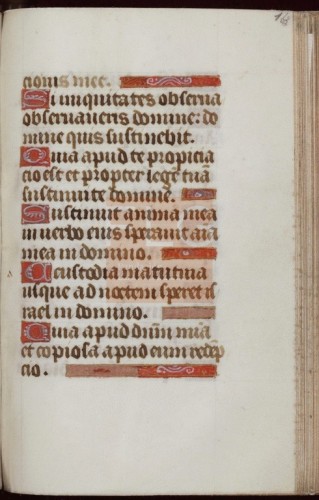 cionis mee.
Si iniquitates observa
observaveris domine: do
mine quis sustinebit.
Quia apud te propicia
cio est et propter legē tuā
sustinui te domine.
Sustinuit anima mea
in verbo eius speravit aīa
mea in domino.
A custodia matutina
usque ad noctem speret is
rael in domino.
Quia apud dnm̄ mīa
et copiosa apud eum redēp
cio.